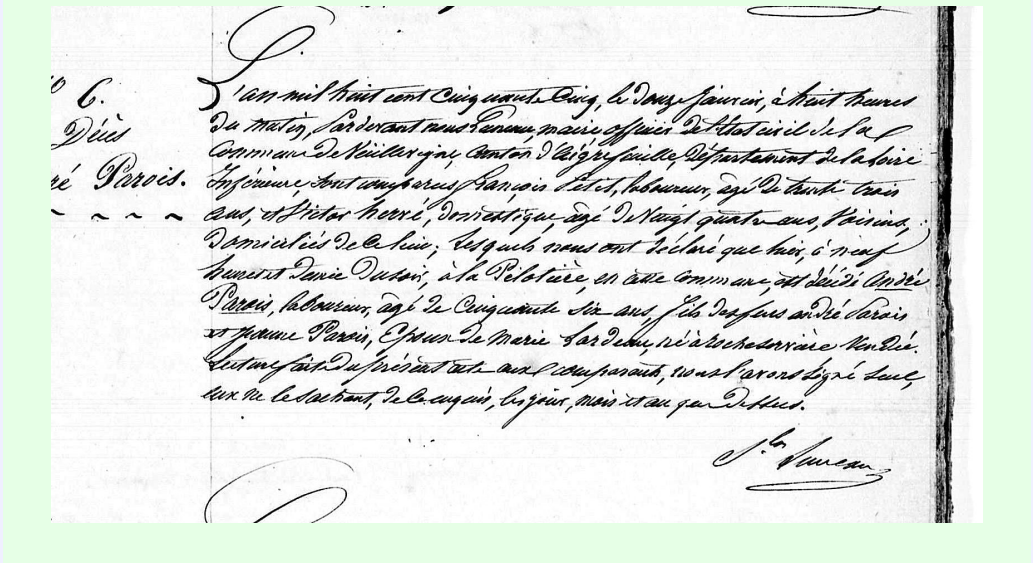 6.
Décès
ré Parois.
L'an mil huit cent cinquante cinq, le douze janvier, à huit heures
du matin, Pardevant nous maire officier de l'état civil de la
Commune de Vieillevigne, canton d'aigrefeuille Département de la Loire
Inférieure, sont comparus françois Petit, laboureur, âgé de trente trois
ans, et Victor hervé, domestique, âgé de Vingt quatre ans, Voisins,
domiciliés de ce lieu; Lesquels nous ont déclaré que hier, à neuf
heures et demie du soir, à la Pilotière, en cette commune, est décédé André
Parois, laboureur, âgé de cinquante six ans, fils des feus andré Parois
et jeanne Parois, Epoux de Marie Lardeau, né à rocheservière Vendée.
Lecture faite du présent acte aux comparants, nous l'avons signé seul,
eux ne le sachant, de ce enquis, les jour, mois et an que dessus.